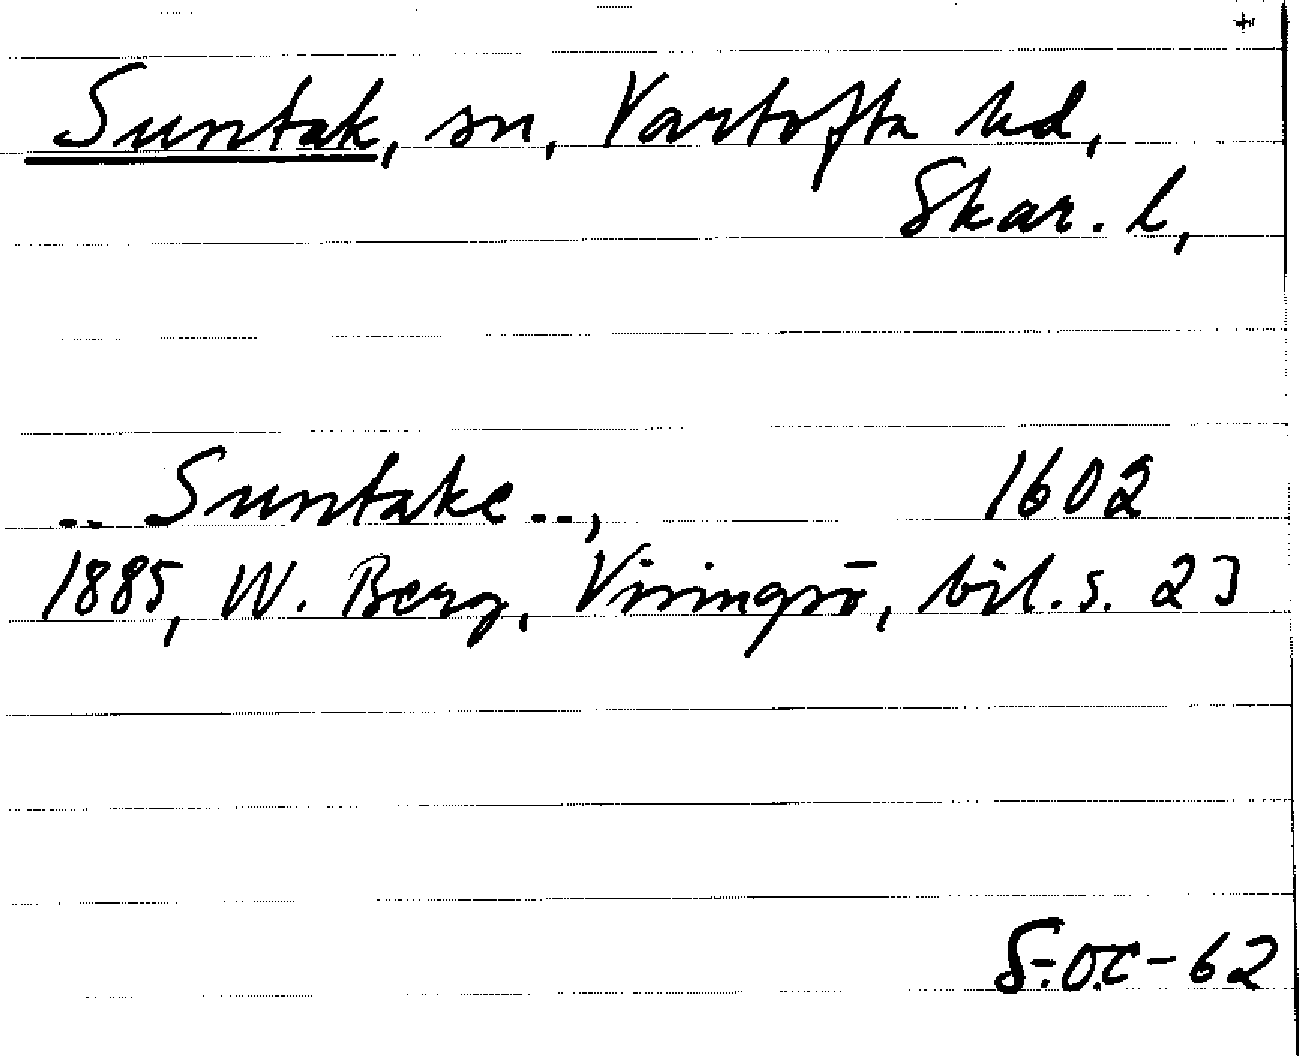 Suntak, sn, Vartofta hd,
Skar. l,
.. Suntake .., 1602
1885, W. Berg, Visingsö, bil. s. 23
-62